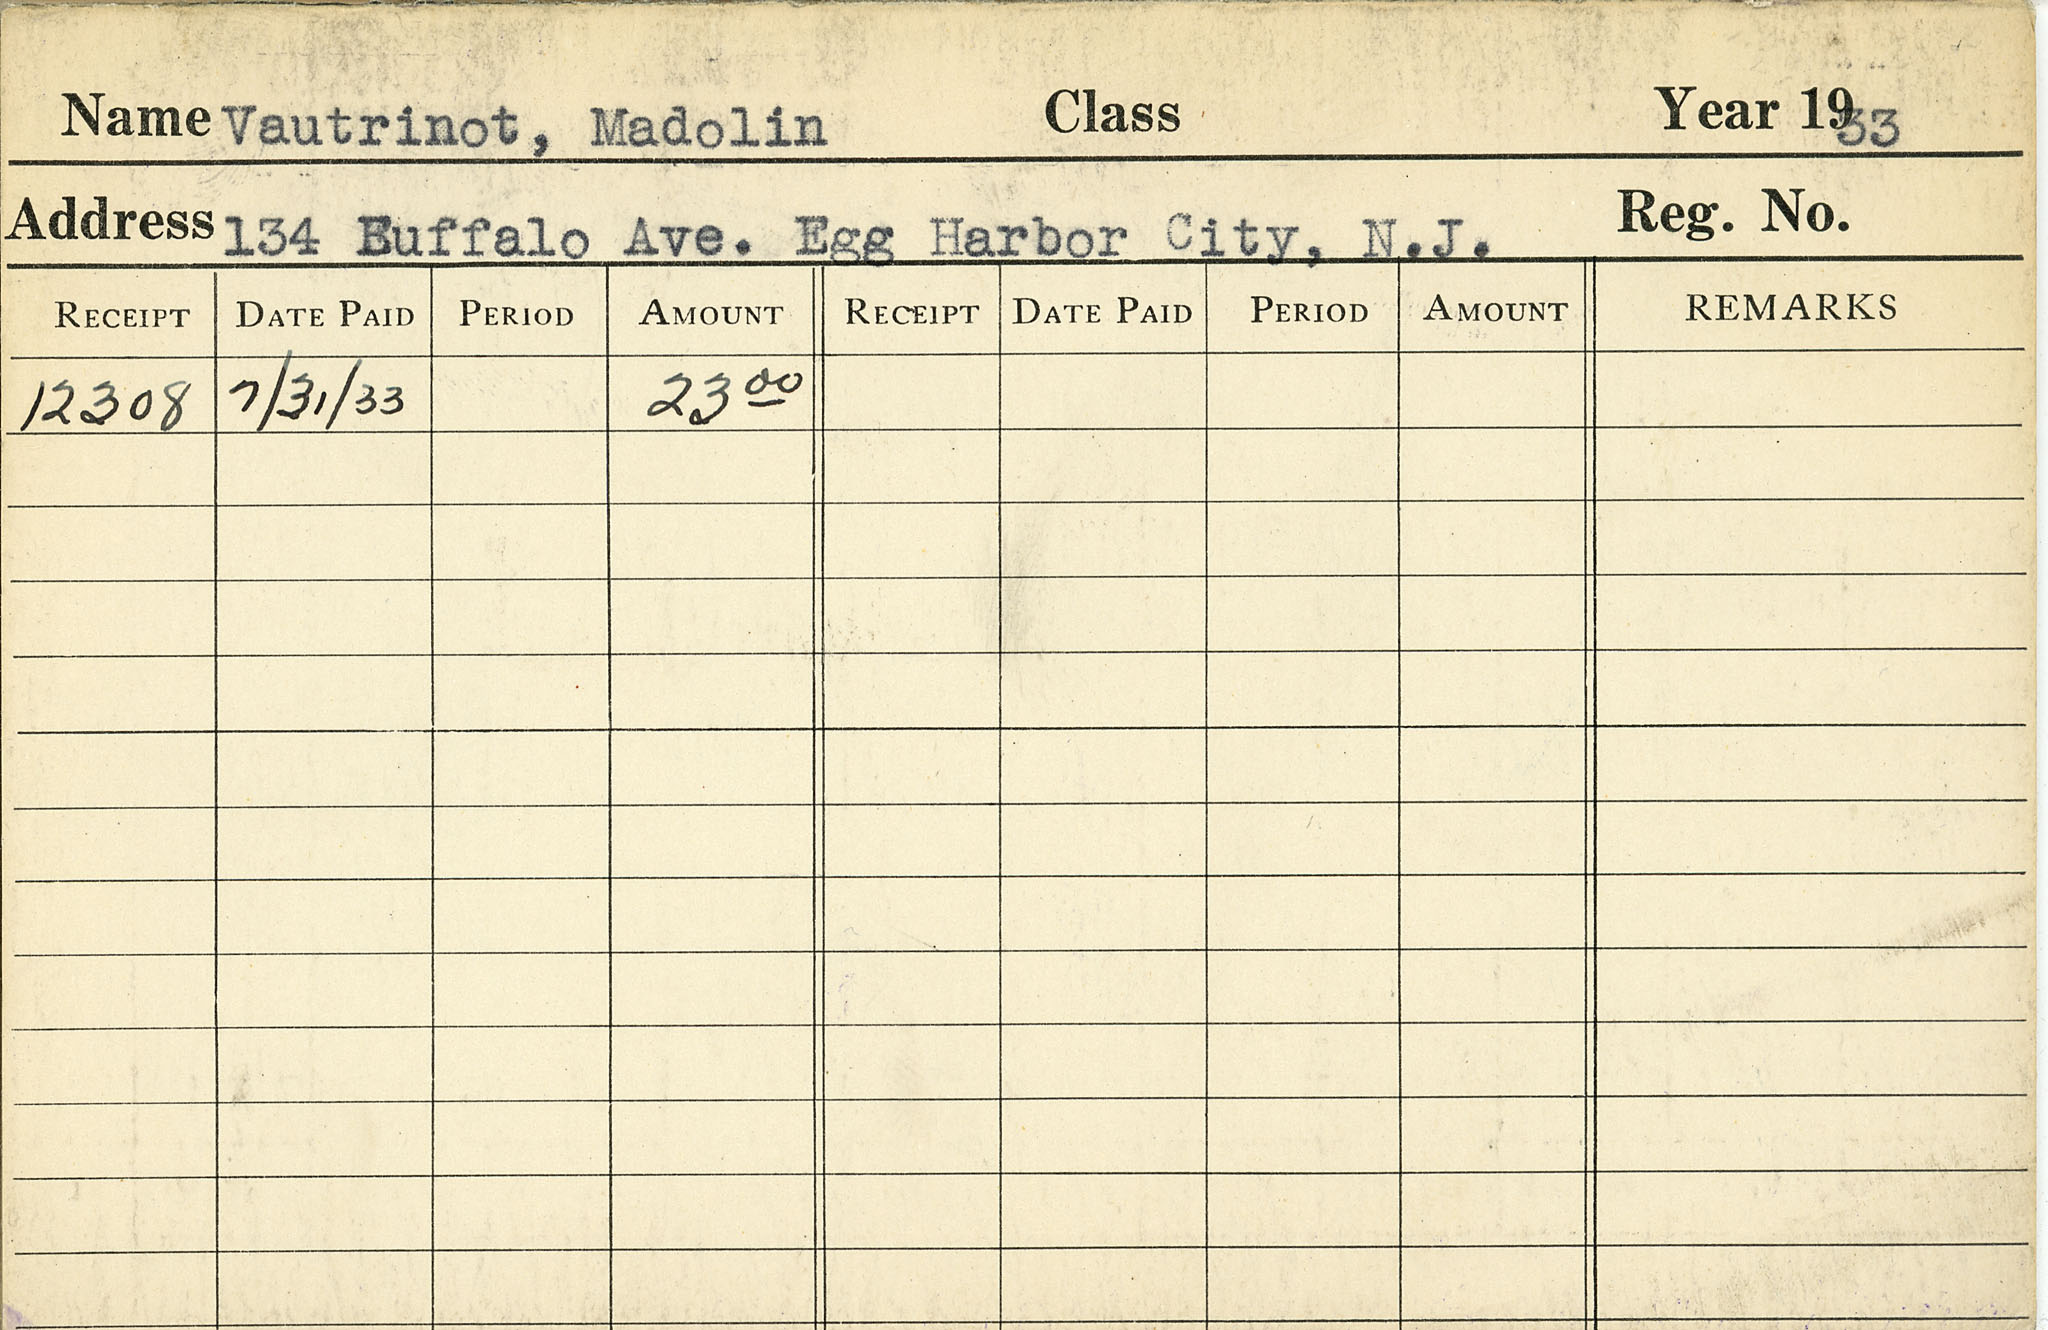 Name Vautrinot, Madolin Class Year 1933
Address 134 Buffalo Ave. Egg Harbor City, N.J. Reg. No.
RECEIPT DATE PAID PERIOD AMOUNT RECEIPT DATE PAID PERIOD AMOUNT REMARKS
12308 7/31/33 23 00